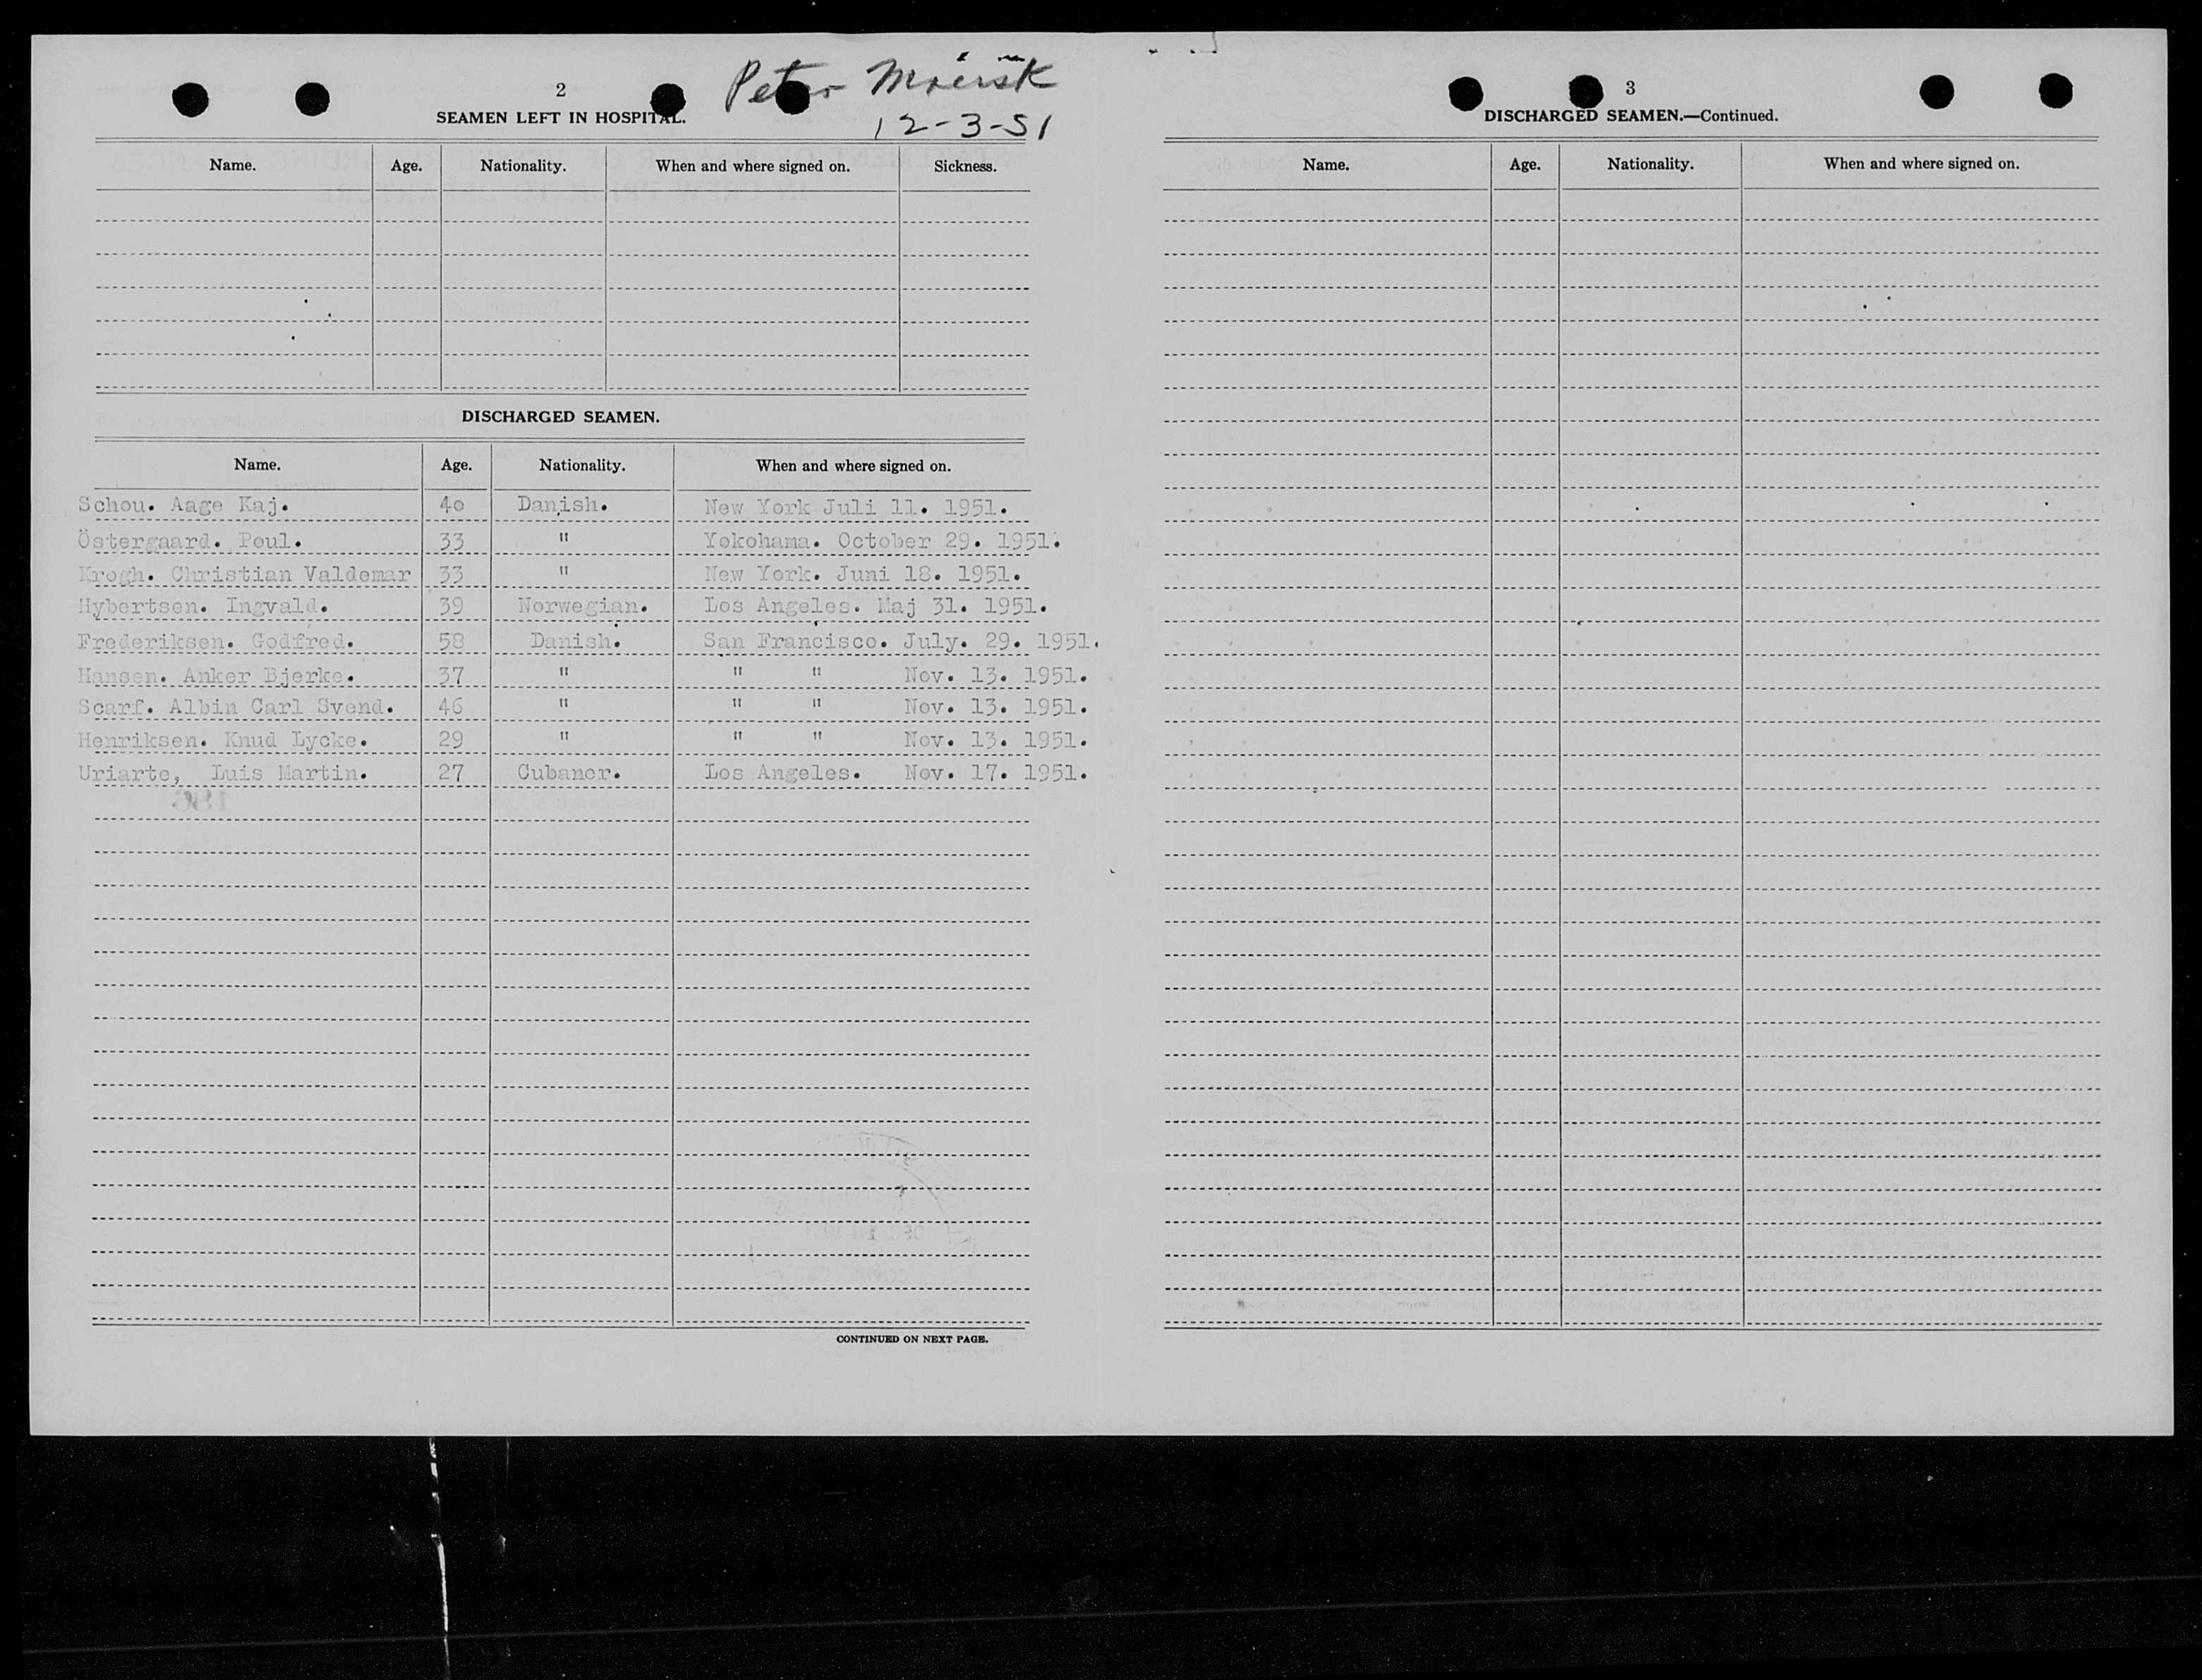 Peter Mærsk
12-3-51
2
SEAMEN LEFT IN HOSPITAL.
Name. Age. Nationality. When and where signed on. Sickness.
DISCHARGED SEAMEN.
Name. Age. Nationality. When and where signed on.
Schou. Aage Kaj. 40 Danish. New York Juli 11. 1951.
Östergaard. Poul. 33 " Yokohama. October 29. 1951.
Krogh. Christian Valdemar 33 " New York. Juni 18. 1951.
Hybertsen. Ingvald. 39 Norwegian. Los Angeles. Maj 31. 1951.
Frederiksen. Godfred. 58 Danish. San Francisco. July. 29. 1951.
Hansen. Anker Bjerke. 37 " " " Nov. 13. 1951.
Scarf. Albin Carl Svend. 46 " " " Nov. 13. 1951.
Henriksen. Knud Lycke. 29 " " " Nov. 13. 1951.
Uriarte, Luis Martin. 27 Cubaner. Los Angeles. Nov. 17. 1951.
CONTINUED ON NEXT PAGE.
3
DISCHARGED SEAMEN.—Continued.
Name. Age. Nationality. When and where signed on.